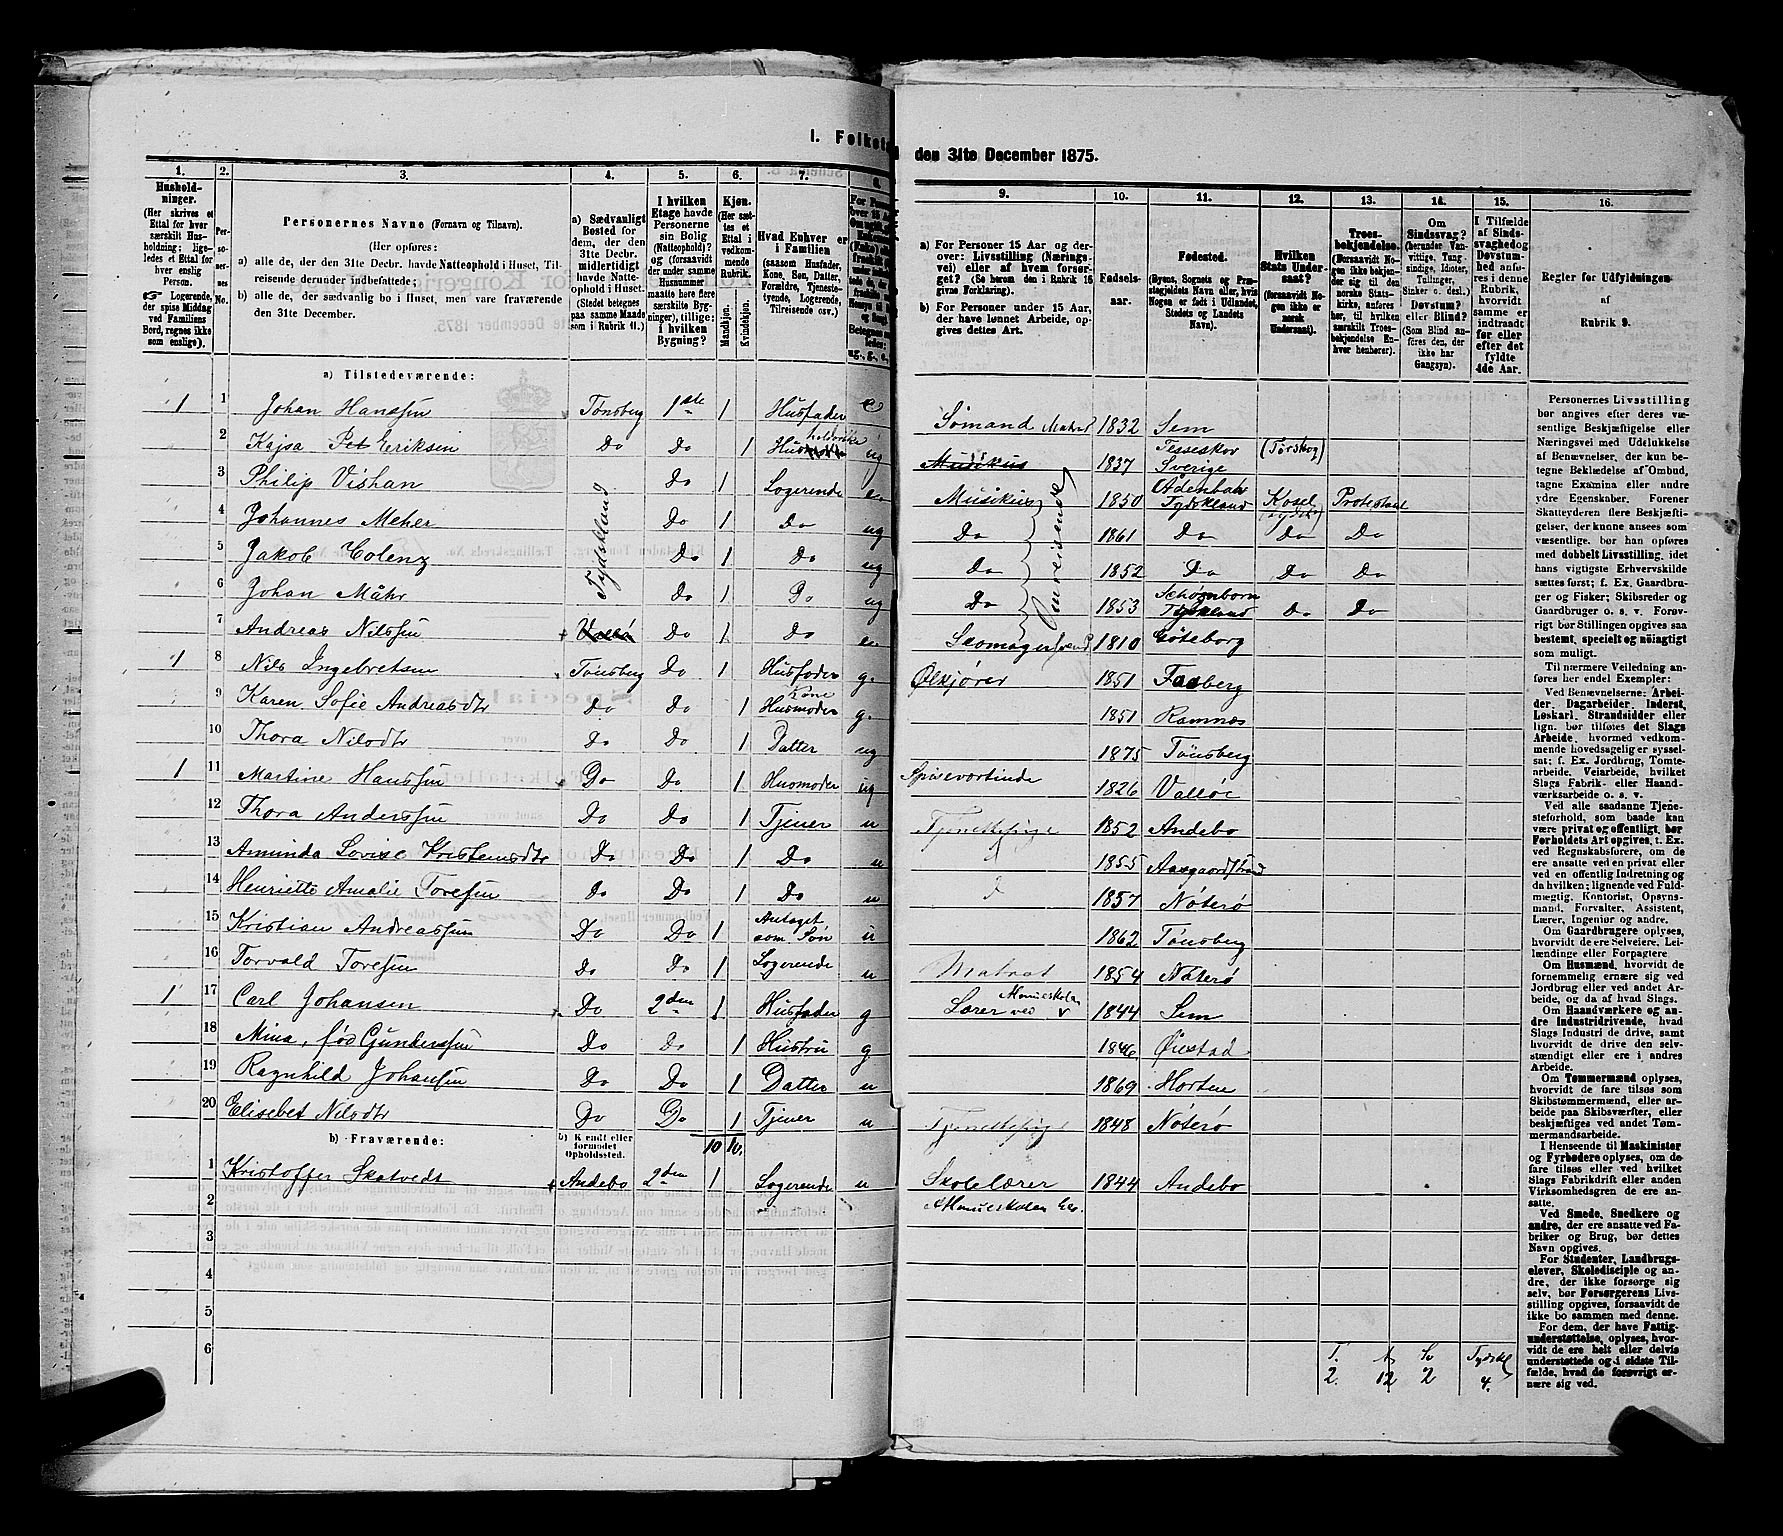 I. Folketæ
den 31te December 1875.
1. 2. 3. 4. 5. 6. 7. 8.
9. 10. 11. 12. 13. 14. 15. 16.
Hushold-
ninger.
(Her skrives et
Ettal for hver
særskilt Hus-
holdning; lige-
ledes et Ettal for
hver enslig
Person.
☞ Logerende,
der spise Middag
ved Familiens
Bord, regnes ikke
som enslige).
Per-
so-
ner-
nes
No.
Personernes Navne (Fornavn og Tilnavn).
(Her opføres:
a) alle de, der den 31te Decbr. havde Natteophold i Huset, Til-
reisende derunder indbefattede;
b) alle de, der sædvanlig bo i Huset, men vare fraværende
den 31te December.
a) Sædvanligt
Bosted for
dem, der den
31te Decbr.
midlertidigt
havde Natte-
ophold i Huset.
(Stedet betegnes
paa samme Maade
som i Rubrik 11.)
I hvilken
Etage havde
Personerne
sin Bolig
(Natteophold)?
(og (forsaavidt
der under samme
Husnummer
maatte høre flere
særskilte Byg-
ninger), tillige:
i hvilken
Bygning?
Kjøn.
(Her sæt-
tes et
Ettal i
vedkom-
mende
Rubrik.
Mandkjøn.
Kvindekjøn.
Hvad Enhver er
i Familien
(saasom Husfader,
Kone, Søn, Datter,
Forældre, Tjeneste-
tyende, Logerende,
Tilreisende osv.)
a) For Personer 15 Aar og der-
over: Livsstilling (Nærings-
vei) eller af hvem forsør-
get? (Se herom den i Rubrik 16
givne Forklaring.)
b) For Personer under 15 Aar,
der have lønnet Arbeide, op-
gives dettes Art.
Fødsels-
aar.
Fødested.
(Byens, Sognets og Præ-
stegjeldets Navn eller, hvis
Nogen er født i Udlandet,
Stedets og Landets
Navn).
Hvilken
Stats Under-
saat?
(forsaavidt No-
gen ikke er
norsk
Undersaat).
Troes-
bekjendelse.
(Forsaavidt No-
gen ikke bekjen-
der sig til den
norske Stats-
kirke, anføres
her, til hvilken
særskilt Troes-
bekjendelse En-
hver henhører).
Om
Sindssvag?
(herunder Van-
vittige, Tung-
sindige, Idioter,
Tullinger,
Sinker o. desl.)
Døvstum?
eller Blind?
(Som Blind an-
føres den, der
ikke har
Gangsyn).
I Tilfælde
af Sinds-
svaghed og
Døvstum-
hed anfø-
res i denne
Rubrik,
hvorvidt
samme er
indtraadt
før eller
efter det
fyldte
4de Aar.
Regler før Udfyldningen
af
Rubrik 9.
a) Tilstedeværende:
1 1 Johan Hanssen Tønsberg 1ste 1 Husfader e Sømand Matros 1832 Sem
2 Kajsa Eriksen Do Do 1 Husholderske ug Musikus 1837 Tesseskov Sverige (Torskog)
3 Philip Vishan Tydskland Do 1 Logerende e Musikus Omreisende 1850 Odenbah Tydskland Kosel (tydsk) Protestant
4 Johannes Meher Do 1 Do ug Do 1861 Do Do Do
5 Jakob Colenz Do 1 Do ug Do 1852 Do Do Do
6 Johan Måhr Do 1 Do ug Do 1853 Schøgnborn Tydskland Do Do
7 Andreas Nilssen Valløe Do 1 Do e Skomagersvend 1810 Göteborg
1 8 Nils Ingebretsen Tønsberg Do 1 Husfader g. Ølkjører 1851 Fadberg
9 Karen Sofie Andreasdtr Do Do 1 Husmoder Kone g. 1851 Ramnæs
10 Thora Nilsdtr Do Do 1 Datter ug 1875 Tønsberg
1 11 Martine Hanssen Do Do 1 Husmoder ug Spiseværtinde 1826 Valløe
12 Thora Anderssen Do Do 1 Tjener u Tjenestepige 1852 Andebo
13 Aminda Lovise Kristensdtr Do Do 1 Do u d 1855 Aasgaardstrand
14 Henriette Amalie Toresen Do Do 1 Do u d 1857 Nøterø
15 Kristian Andreassen Do Do 1 Antaget som Søn u 1862 Tønsberg
16 Torvald Toresen Do Do 1 Logerende u Matros 1854 Nøterø
1 17 Carl Johansen Do 2den 1 Husfader g Lærer ved Almueskolen 1844 Sem
18 Mina, fød Gunderssen Do Do 1 Hustru g 1846 Øiestad
19 Ragnhild Johansen Do Do 1 Datter u 1869 Horten
20 Elisebet Nilsdtr Do Do 1 Tjener u Tjenestepige 1848 Nøterø
b) Fraværende:
b) Kendt eller
formodet
Opholdssted.
10 10.
1 Kristoffer Skatvedt Andebo 2den 1 Logerende u Skolelærer 1844 Andebo
2 Almueskolen
3
4
5
6
T. A. Sv Tydskl
2. 12 2 4.
Personernes Livsstilling
bør angives efter deres væ-
sentlige Beskjæftigelse eller
Næringsvei med Udelukkelse
af Benævnelser, der kun be-
tegne Beklædelse af Ombud,
tagne Examina eller andre
ydre Egenskaber. Forener
Skatteyderen flere Beskjæfti-
gelser, der kunne ansees som
væsentlige, bør han opføres
med dobbelt Livsstilling, idet
hans vigtigste Erhvervskilde
sættes først; f. Ex. Gaardbru-
ger og Fisker; Skibsreder og
Gaardbruger o. s. v. Forøv-
rigt bør Stillingen opgives saa
bestemt, specielt og nöiagtigt
som muligt.
Til nærmere Veiledning an-
føres her endel Exempler:
Ved Benævnelserne: Arbei-
der, Dagarbeider, Inderst,
Løskarl, Strandsidder eller
lign. bør tilføies det Slags
Arbeide, hvormed vedkom-
mende hovedsagelig er syssel-
sat; f. Ex. Jordbrug, Tomte-
arbeide, Veiarbeide, hvilket
Slags Fabrik- eller Haand-
værksarbeide o. s. v.
Ved alle saadanne Tjene-
steforhold, som baade kan
være privat og offentligt, bør
Forholdets Art opgives, t. Ex.
ved Regnskabsførere, om de
ere ansatte ved en privat eller
ved en offentlig Indretning og
da hvilken; lignende ved Fuld-
mægtig, Kontorist, Opsyns-
mand, Forvalter, Assistent,
Lærer, Ingeniør og andre.
Om Gaardbrugere oplyses,
hvorvidt de ere Selveiere, Lei-
lændinge eller Forpagtere
Om Husmænd, hvorvidt de
fornemmelig ernære sig ved
Jordbrug eller ved andet Ar-
beide, og da af hvad Slags.
Om Haandværkere og an-
dre Industridrivende, hvad
Slags Industri de drive, samt
hvorvidt de drive den selv-
stændigt eller ere i andres
Arbeide.
Om Tømmermænd oplyses,
hvorvidt de fare tilsøs som
Skibstømmermænd, eller ar-
beide paa Skibsværfter, eller
beskjæftiges ved andet Tøm-
mermandsarbeide.
I Henseende til Maskinister
og Fyrbødere oplyses, om de
fare tilsøs eller ved hvilket
Slags Fabrikdrift eller anden
Virksomhedsgren de ere an-
satte.
Ved Smede, Snedkere og
andre, der ere ansatte ved Fa-
briker og Brug, bør dettes
Navn opgives.
For Studenter, Landbrugs-
elever, Skoledisciple og an-
dre, der ikke forsørge sig
selv, bør Forsørgerens Livs-
stilling opgives, forsaavidt de
ikke bo sammen med denne.
For dem, der have Fattig-
understøttelse, oplyses, hvor-
vidt de ere helt eller delvis
understøttede og i sidste Til-
fælde, hvad de forøvrigt er-
nære sig ved.